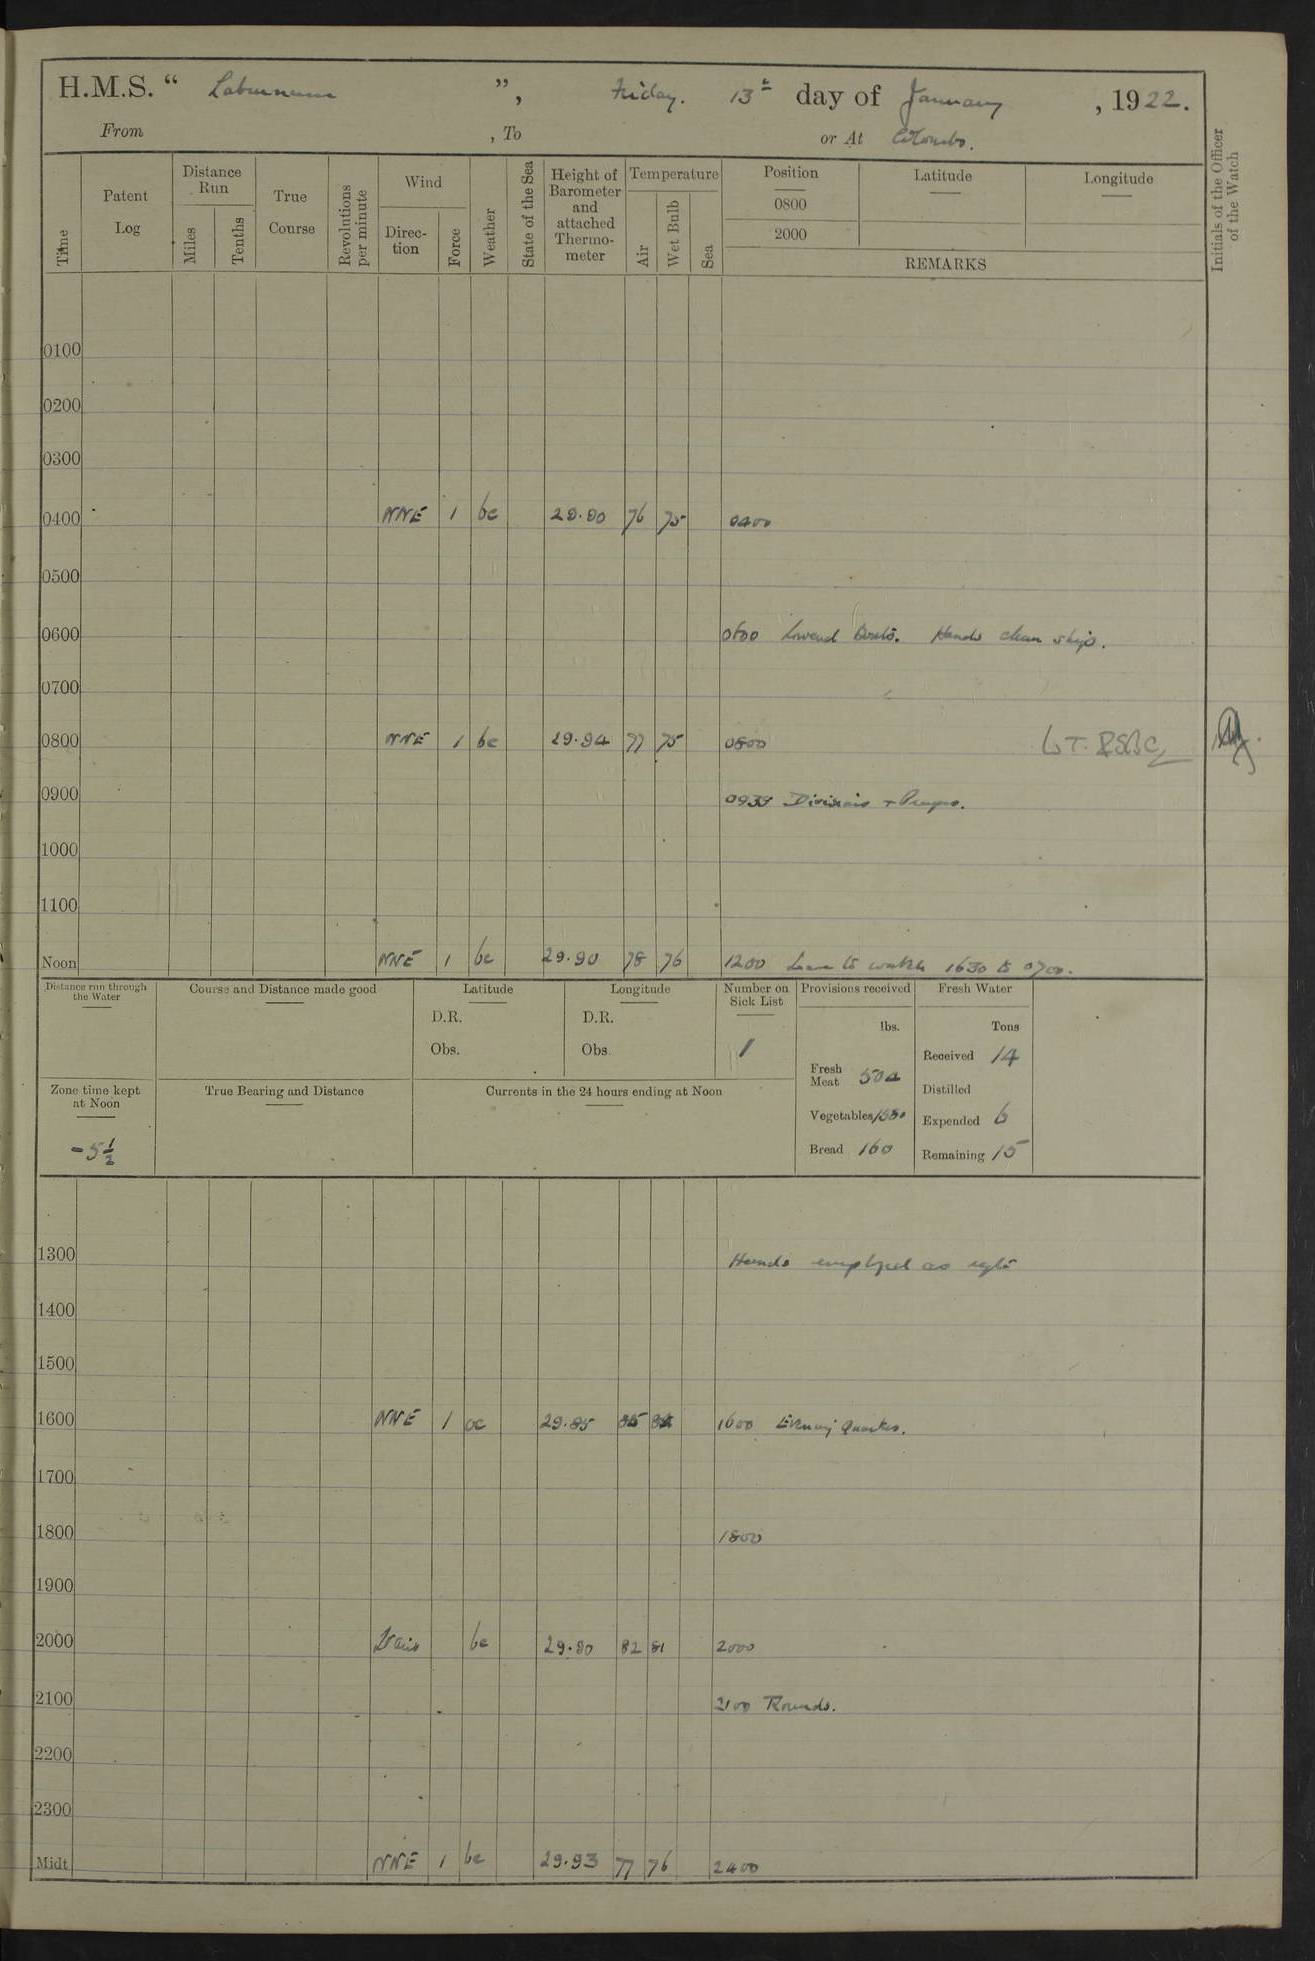 H.M.S. “ Laburnum ”, Friday. 13th day of January, 1922.
From , To or At Colombo.
Time
Patent Log
Distance Run
Miles
Tenths
True Course
Revolutions per minute
Wind
Direction
Force
Weather
State of the Sea
Height of Barometer and attached Thermometer
Temperature
Air
Wet Bulb
Sea
Position
0800
2000
Latitude
Longitude
REMARKS
Initials of the Officer of the Watch
0100
0200
0300
0400 NNE 1 bc 29.90 76 75 0400
0500
0600 0600 Lowered Boats. Hands clean ship.
0700
0800 NNE 1 bc 29.94 77 75 0800
0900 0939 Divisions + Prayers.
1000
1100
Noon NNE 1 bc 29.90 78 76 1200 Leave to watch 1630 to 0700.
Distance run through the Water
Course and Distance made good
Latitude
D.R.
Obs.
Longitude
D.R.
Obs.
Number on Sick List
1
Provisions received
lbs.
Fresh Meat 504
Vegetables
Bread 160
Fresh Water
Tons
Received 14
Distilled
Expended 6
Remaining 15
Zone time kept at Noon
-5½
True Bearing and Distance
Currents in the 24 hours ending at Noon
1300 Hands employed as reqte
1400
1500
1600 NNE 1 oc 29.85 1600 Evening Quarters.
1700
1800 1800
1900
2000 Vais bc 29.90 82 81 2000
2100 2100 Rounds.
2200
2300
Midt NNE 1 bc 29.93 77 76 2400